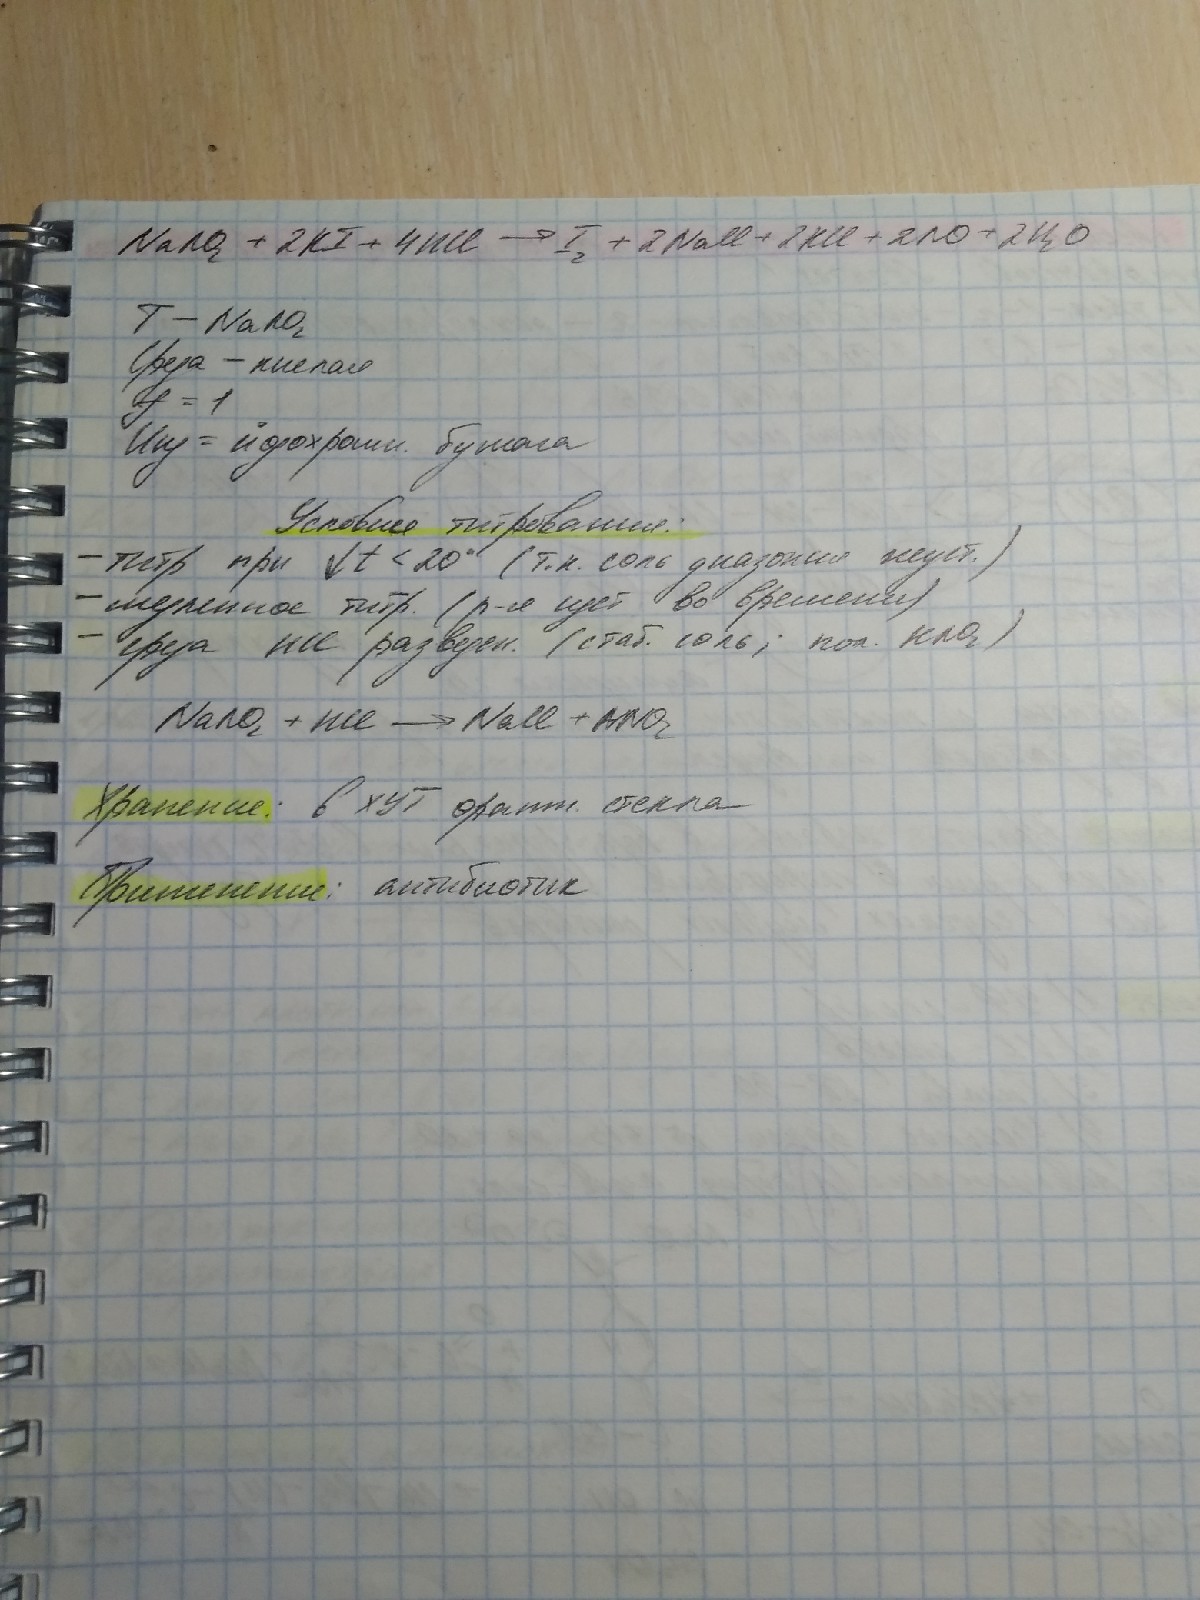 NaNO₂ + 2KI + 4HCl → I₂ + 2NaCl + 2KCl + 2NO + 2H₂O
T – NaNO₂
Среда – кислая
f = 1
Инд = йодкрахм. бумага
Условие титрования:
– титр при ↓t < 20° (т.к. соль диазония неуст.)
– медленное титр. (р-я идет во времени)
– среда HCl разведен. (стаб. соль; пол. HNO₂)
NaNO₂ + HCl → NaCl + HNO₂
Хранение: в ХУТ оранж. стекла
Применение: антибиотик